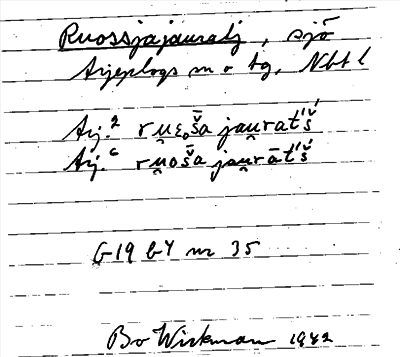 Ruossjajauratj, sjö
Arjeplogs sn o tg, Nbt l
Arj.² ru̯ɛo̭š̄a jau̯rat́š́
Arj.⁶ ru̯oš̄a jau̯rāt́š́
G 19 b4 nr 35
Bo Wickman 1942